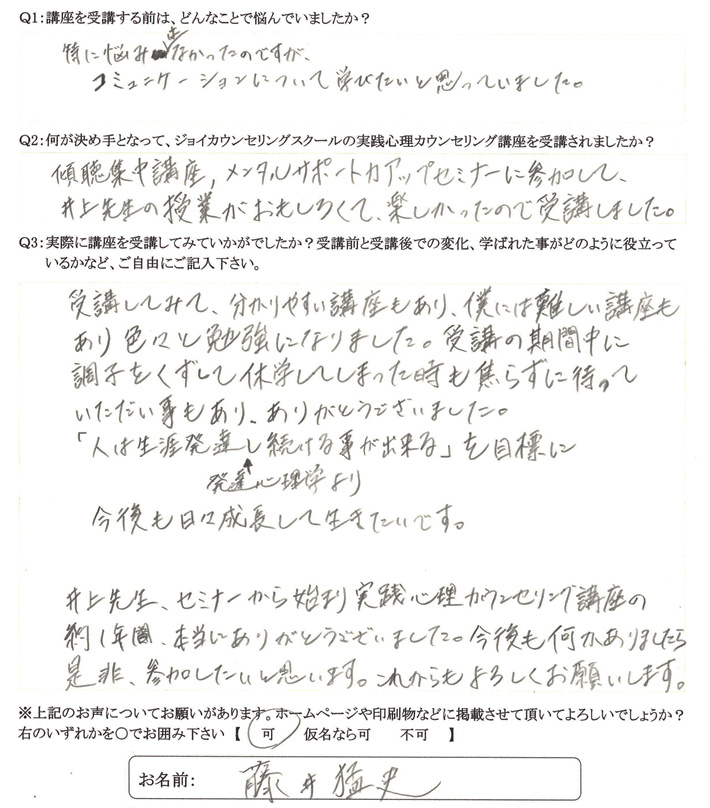 Q1:講座を受講する前は、どんなことで悩んでいましたか？
特に悩みもなかったのですが、
コミュニケーションについて学びたいと思っていました。
Q2:何が決め手となって、ジョイカウンセリングスクールの実践心理カウンセリング講座を受講されましたか？
傾聴集中講座，メンタルサポート力アップセミナーに参加して、
井上先生の授業がおもしろくて、楽しかったので受講しました。
Q3:実際に講座を受講してみていかがでしたか？受講前と受講後での変化、学ばれた事がどのように役立って
いるかなど、ご自由にご記入下さい。
受講してみて、分かりやすい講座もあり、僕には難しい講座も
あり色々と勉強になりました。受講の期間中に
調子をくずして休学してしまった時も焦らずに待って
いただい事もあり、ありがとうございました。
「人は生涯発達し続ける事が出来る」を目標に
発達心理学より
今後も日々成長して生きたいです。
井上先生、セミナーから始まり実践心理カウンセリング講座の
約1年間、本当にありがとうございました。今後も何かありましたら
是非、参加したいと思います。これからもよろしくお願いします。
※上記のお声についてお願いがあります。ホームページや印刷物などに掲載させて頂いてよろしいでしょうか？
右のいずれかを○でお囲み下さい【 可 仮名なら可 不可 】
お名前: 藤井猛史